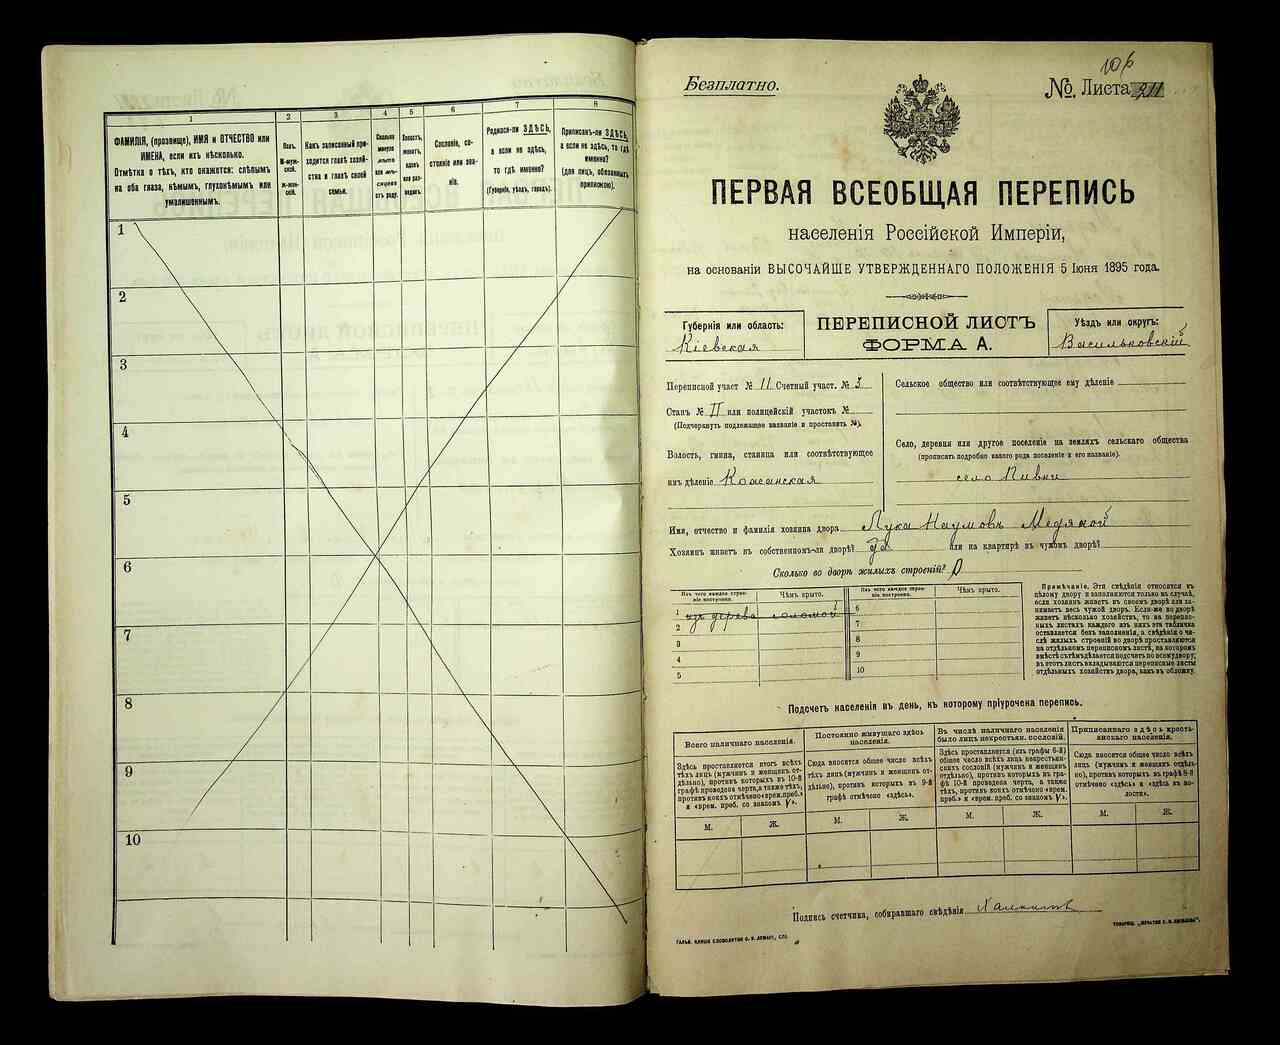 1
2
3
4
5
6
7
8
ФАМИЛІЯ, (прозвище), ИМЯ и ОТЧЕСТВО или
ИМЕНА, если ихъ нѣсколько.
Отмѣтка о тѣхъ, кто окажется: слѣпымъ
на оба глаза, нѣмымъ, глухонѣмымъ или
умалишеннымъ.
Полъ.
М-муж-
ской.
Ж-жен-
скій.
Какъ записанный при-
ходится главѣ хозяй-
ства и главѣ своей
семьи.
Сколько
минуло
лѣтъ
или мѣ-
сяцевъ
отъ роду.
Холостъ,
женатъ,
вдовъ
или раз-
веденъ.
Сословіе, со-
стояніе или зва-
ніе.
Родился-ли ЗДѢСЬ,
а если не здѣсь,
то гдѣ именно?
(Губернія, уѣздъ, городъ).
Приписанъ-ли ЗДѢСЬ,
а если не здѣсь, то гдѣ
именно?
(для лицъ, обязанныхъ
припискою).
1
2
3
4
5
6
7
8
9
10
106
Безплатно.
№ Листа
ПЕРВАЯ ВСЕОБЩАЯ ПЕРЕПИСЬ
населенія Россійской Имперіи,
на основаніи ВЫСОЧАЙШЕ УТВЕРЖДЕННАГО ПОЛОЖЕНІЯ 5 Іюня 1895 года.
Губернія или область:
Кіевская
ПЕРЕПИСНОЙ ЛИСТЪ
ФОРМА А.
Уѣздъ или округъ:
Васильковскій
Переписной участ № 11 Счетный участ. № 3
Станъ № II или полицейскій участокъ №
(Подчеркнуть подлежащее названіе и проставить №).
Волость, гмина, станица или соотвѣтствующее
имъ дѣленіе Кожанская
Сельское общество или соотвѣтствующее ему дѣленіе
Село, деревня или другое поселеніе на земляхъ сельскаго общества
(прописать подробно какого рода поселеніе и его названіе).
село Пивни
Имя, отчество и фамилія хозяина двора Лука Наумовъ Медяной
Хозяинъ живетъ въ собственномъ-ли дворѣ? да или на квартирѣ въ чужомъ дворѣ?
Сколько во дворѣ жилыхъ строеній?
Изъ чего каждое строе-
ніе построено.
Чѣмъ крыто.
Изъ чего каждое строе-
ніе построено.
Чѣмъ крыто.
1 изъ дерева соломой
2
3
4
5
6
7
8
9
10
Примѣчаніе. Эти свѣдѣнія относятся къ
цѣлому двору и заполняются только въ случаѣ,
если хозяинъ живетъ въ своемъ дворѣ или за-
нимаетъ весь чужой дворъ. Если-же во дворѣ
живетъ нѣсколько хозяйствъ, то на перепис-
ныхъ листахъ каждаго изъ нихъ эта табличка
оставляется безъ заполненія, а свѣдѣнія о чи-
слѣ жилыхъ строеній во дворѣ проставляются
на отдѣльномъ переписномъ листѣ, на которомъ
вмѣстѣ съ тѣмъ дѣлается подсчетъ по всему двору;
въ этотъ листъ вкладываются переписные листы
отдѣльныхъ хозяйствъ двора, какъ въ обложку.
Подсчетъ населенія въ день, къ которому пріурочена перепись.
Всего наличнаго населенія.
Здѣсь проставляется итогъ всѣхъ
тѣхъ лицъ (мужчинъ и женщинъ от-
дѣльно), противъ которыхъ въ 10-й
графѣ проведена черта, а также тѣхъ,
противъ коихъ отмѣчено «врем. преб.»
и «врем. преб. со знакомъ V».
Постоянно живущаго здѣсь
населенія.
Сюда вносятся общее число всѣхъ
тѣхъ лицъ (мужчинъ и женщинъ от-
дѣльно), противъ которыхъ въ 9-й
графѣ отмѣчено «здѣсь».
Въ числѣ наличнаго населенія
было лицъ некрестьян. сословій.
Здѣсь проставляется (изъ графы 6-й)
общее число всѣхъ лицъ некрестьян-
скихъ сословій (мужчинъ и женщинъ
отдѣльно), противъ которыхъ въ гра-
фѣ 10-й проведена черта, а также
тѣхъ, противъ коихъ отмѣчено «врем.
преб.» и «врем. преб. со знакомъ V».
Приписаннаго здѣсь кресть-
янскаго населенія.
Сюда вносятся общее число всѣхъ
лицъ (мужчинъ и женщинъ отдѣль-
но), противъ которыхъ въ графѣ 8-й
отмѣчено «здѣсь» и «здѣсь въ во-
лости».
М.
Ж.
М.
Ж.
М.
Ж.
М.
Ж.
Подпись счетчика, собиравшаго свѣдѣнія